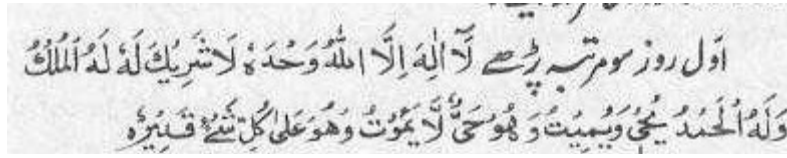 اوّل روز سو مرتبہ پڑھے لَآ اِلٰهَ اِلَّا اللّٰهُ وَحْدَهٗ لَا شَرِيْكَ لَهٗ لَهُ الْمُلْكُ
وَلَهُ الْحَمْدُ يُحْيٖ وَيُمِيْتُ وَهُوَ حَىٌّ لَّا يَمُوْتُ وَهُوَ عَلٰى كُلِّ شَىْءٍ قَدِيْرٌ ه